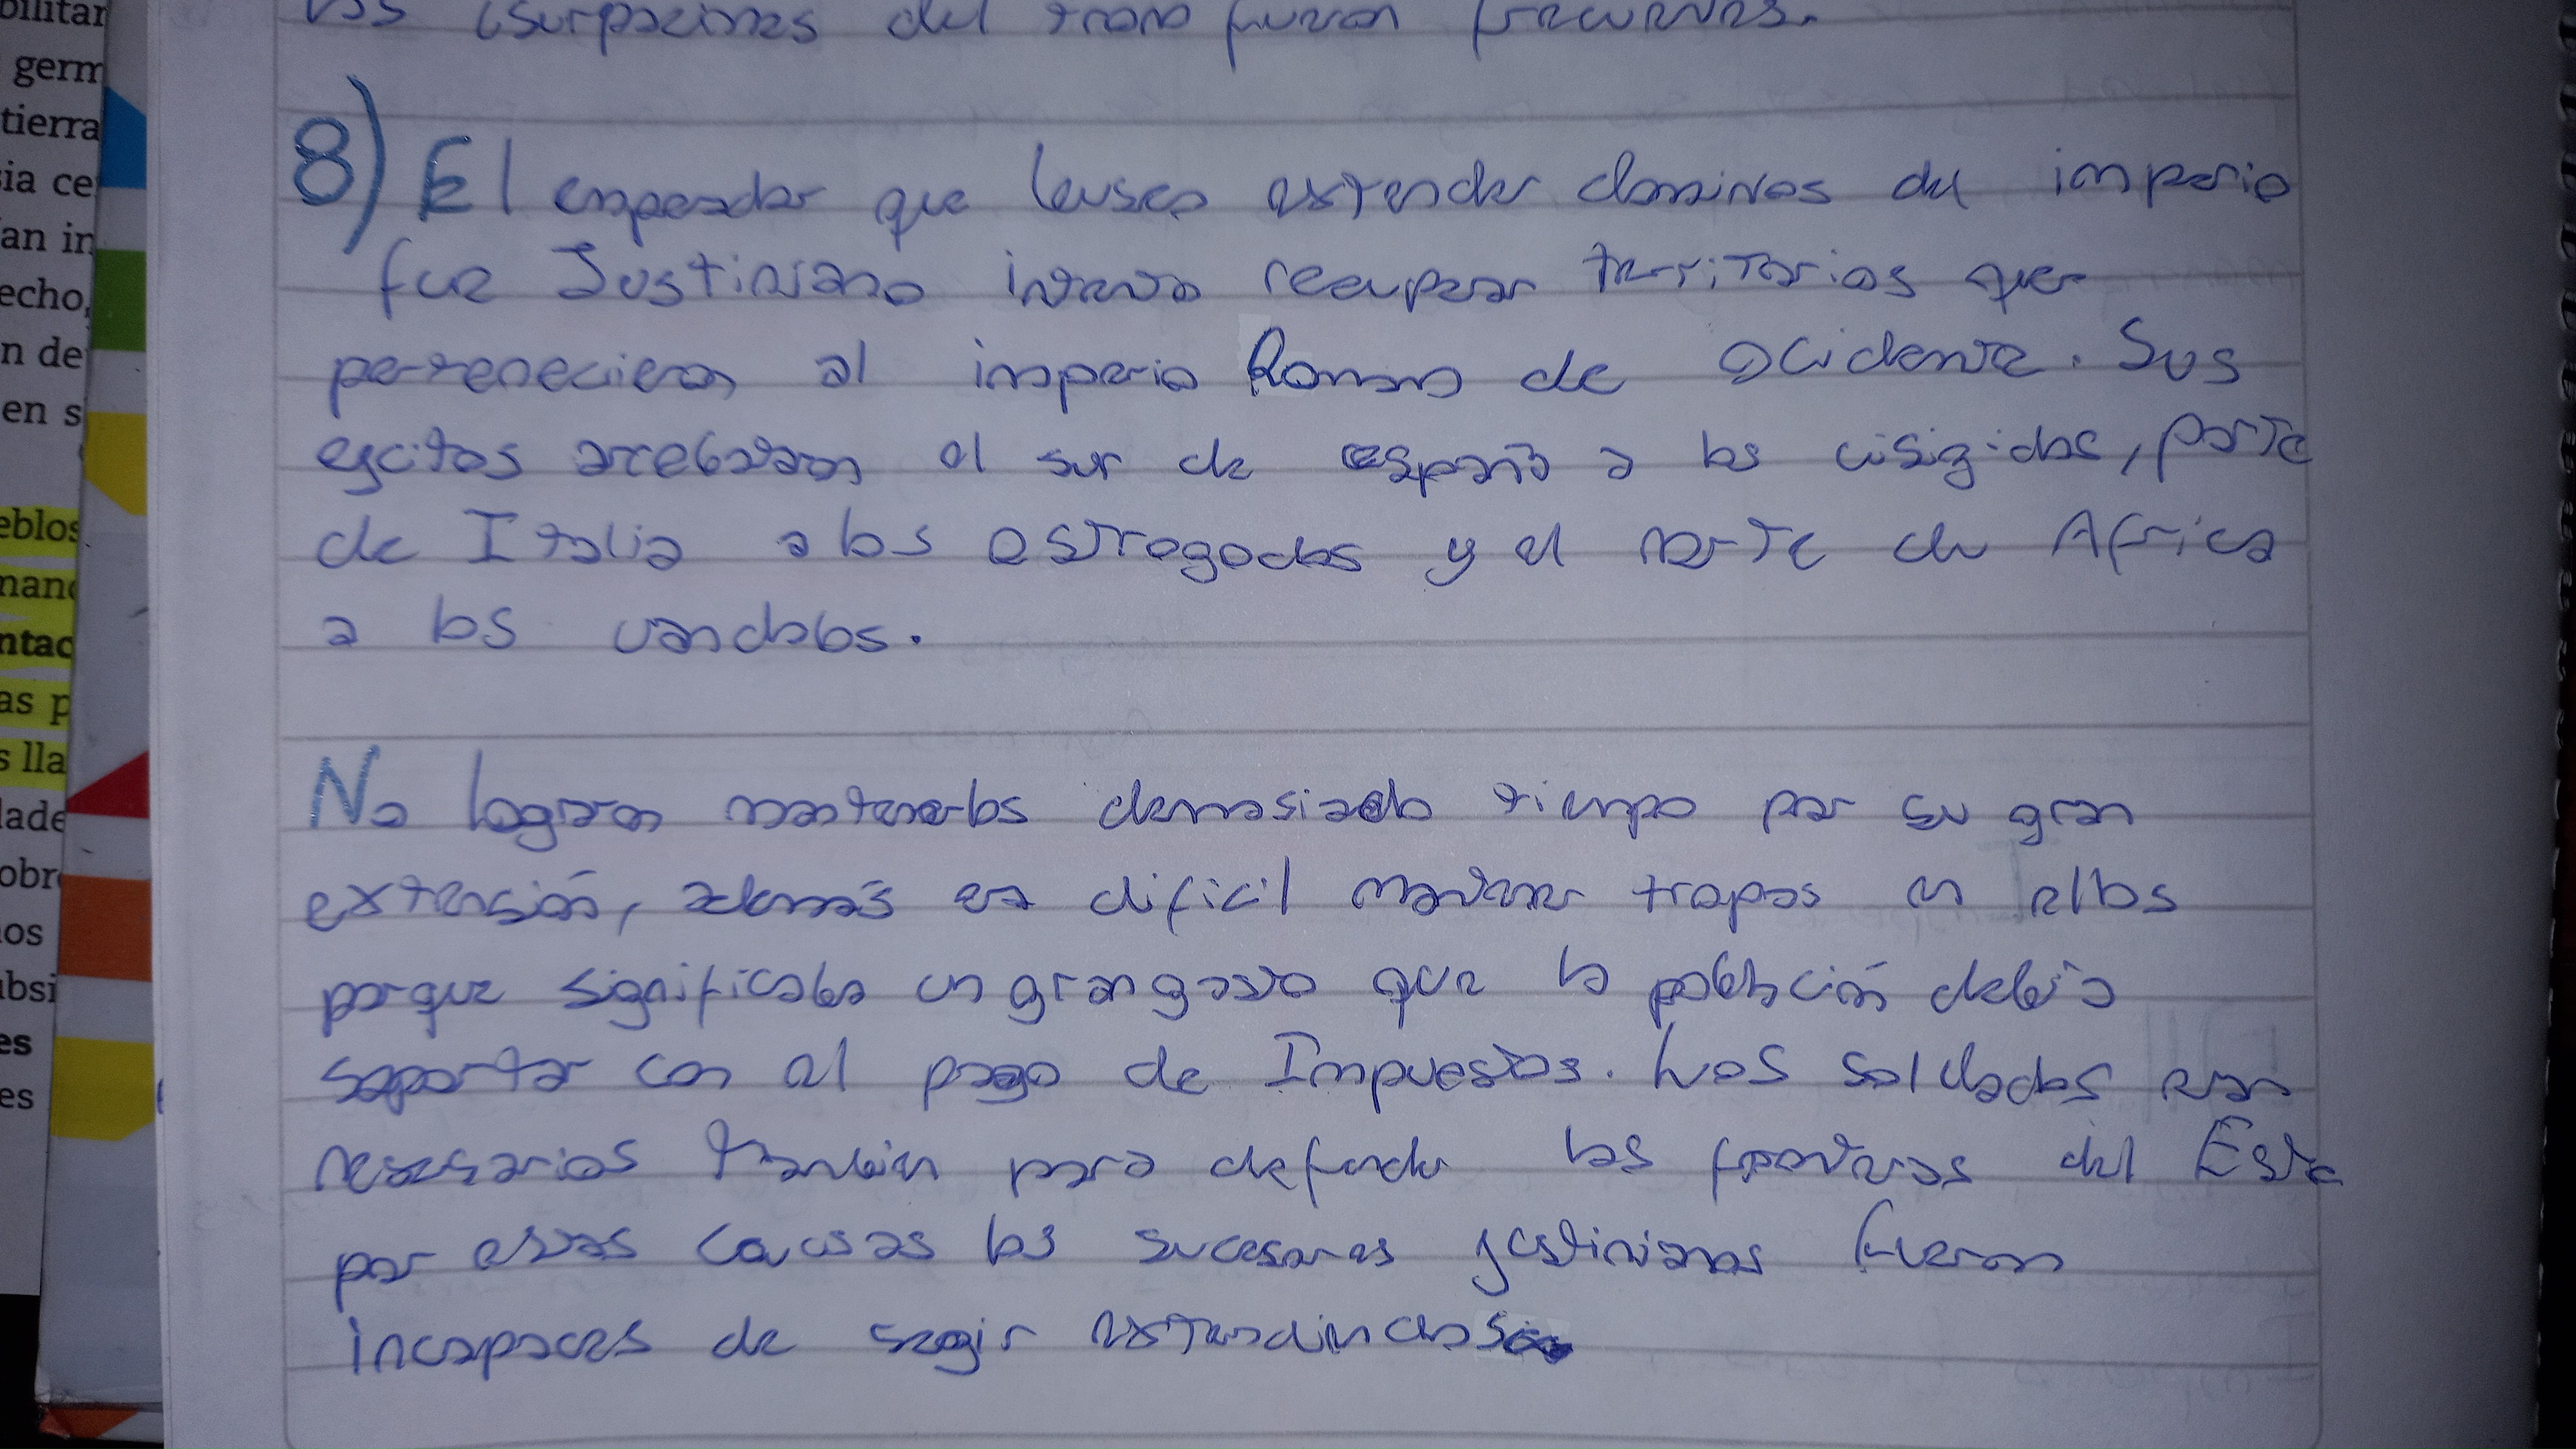 bilitar
germ
tierra
sia ce
an in
echo,
n de
en s
eblos
mano
ntac
as p
s lla
lade
obre
nos
ubsi
es
es
los usurpaciones del trono fueron frecuentes.
8) El emperador que busco extender dominios del imperio
fue Justiniano intento recuperar territorios que
pertenecieron al imperio Romano de Occidente. Sus
ejcitos arrebataron el sur de españa a los visigidos, parte
de Italia a los ostrogodos y el norte de Africa
a los vandalos.
No lograron mantenerlos demasiado tiempo por su gran
extensión, además era dificil mantener tropas en ellos
porque significaba un gran gasto que la población debía
soportar con el pago de Impuestos. Los soldados eran
nesesarios tambien para defender las fronteras del Este
por estas causas los sucesores justinianos fueron
incapaces de segir extendindos